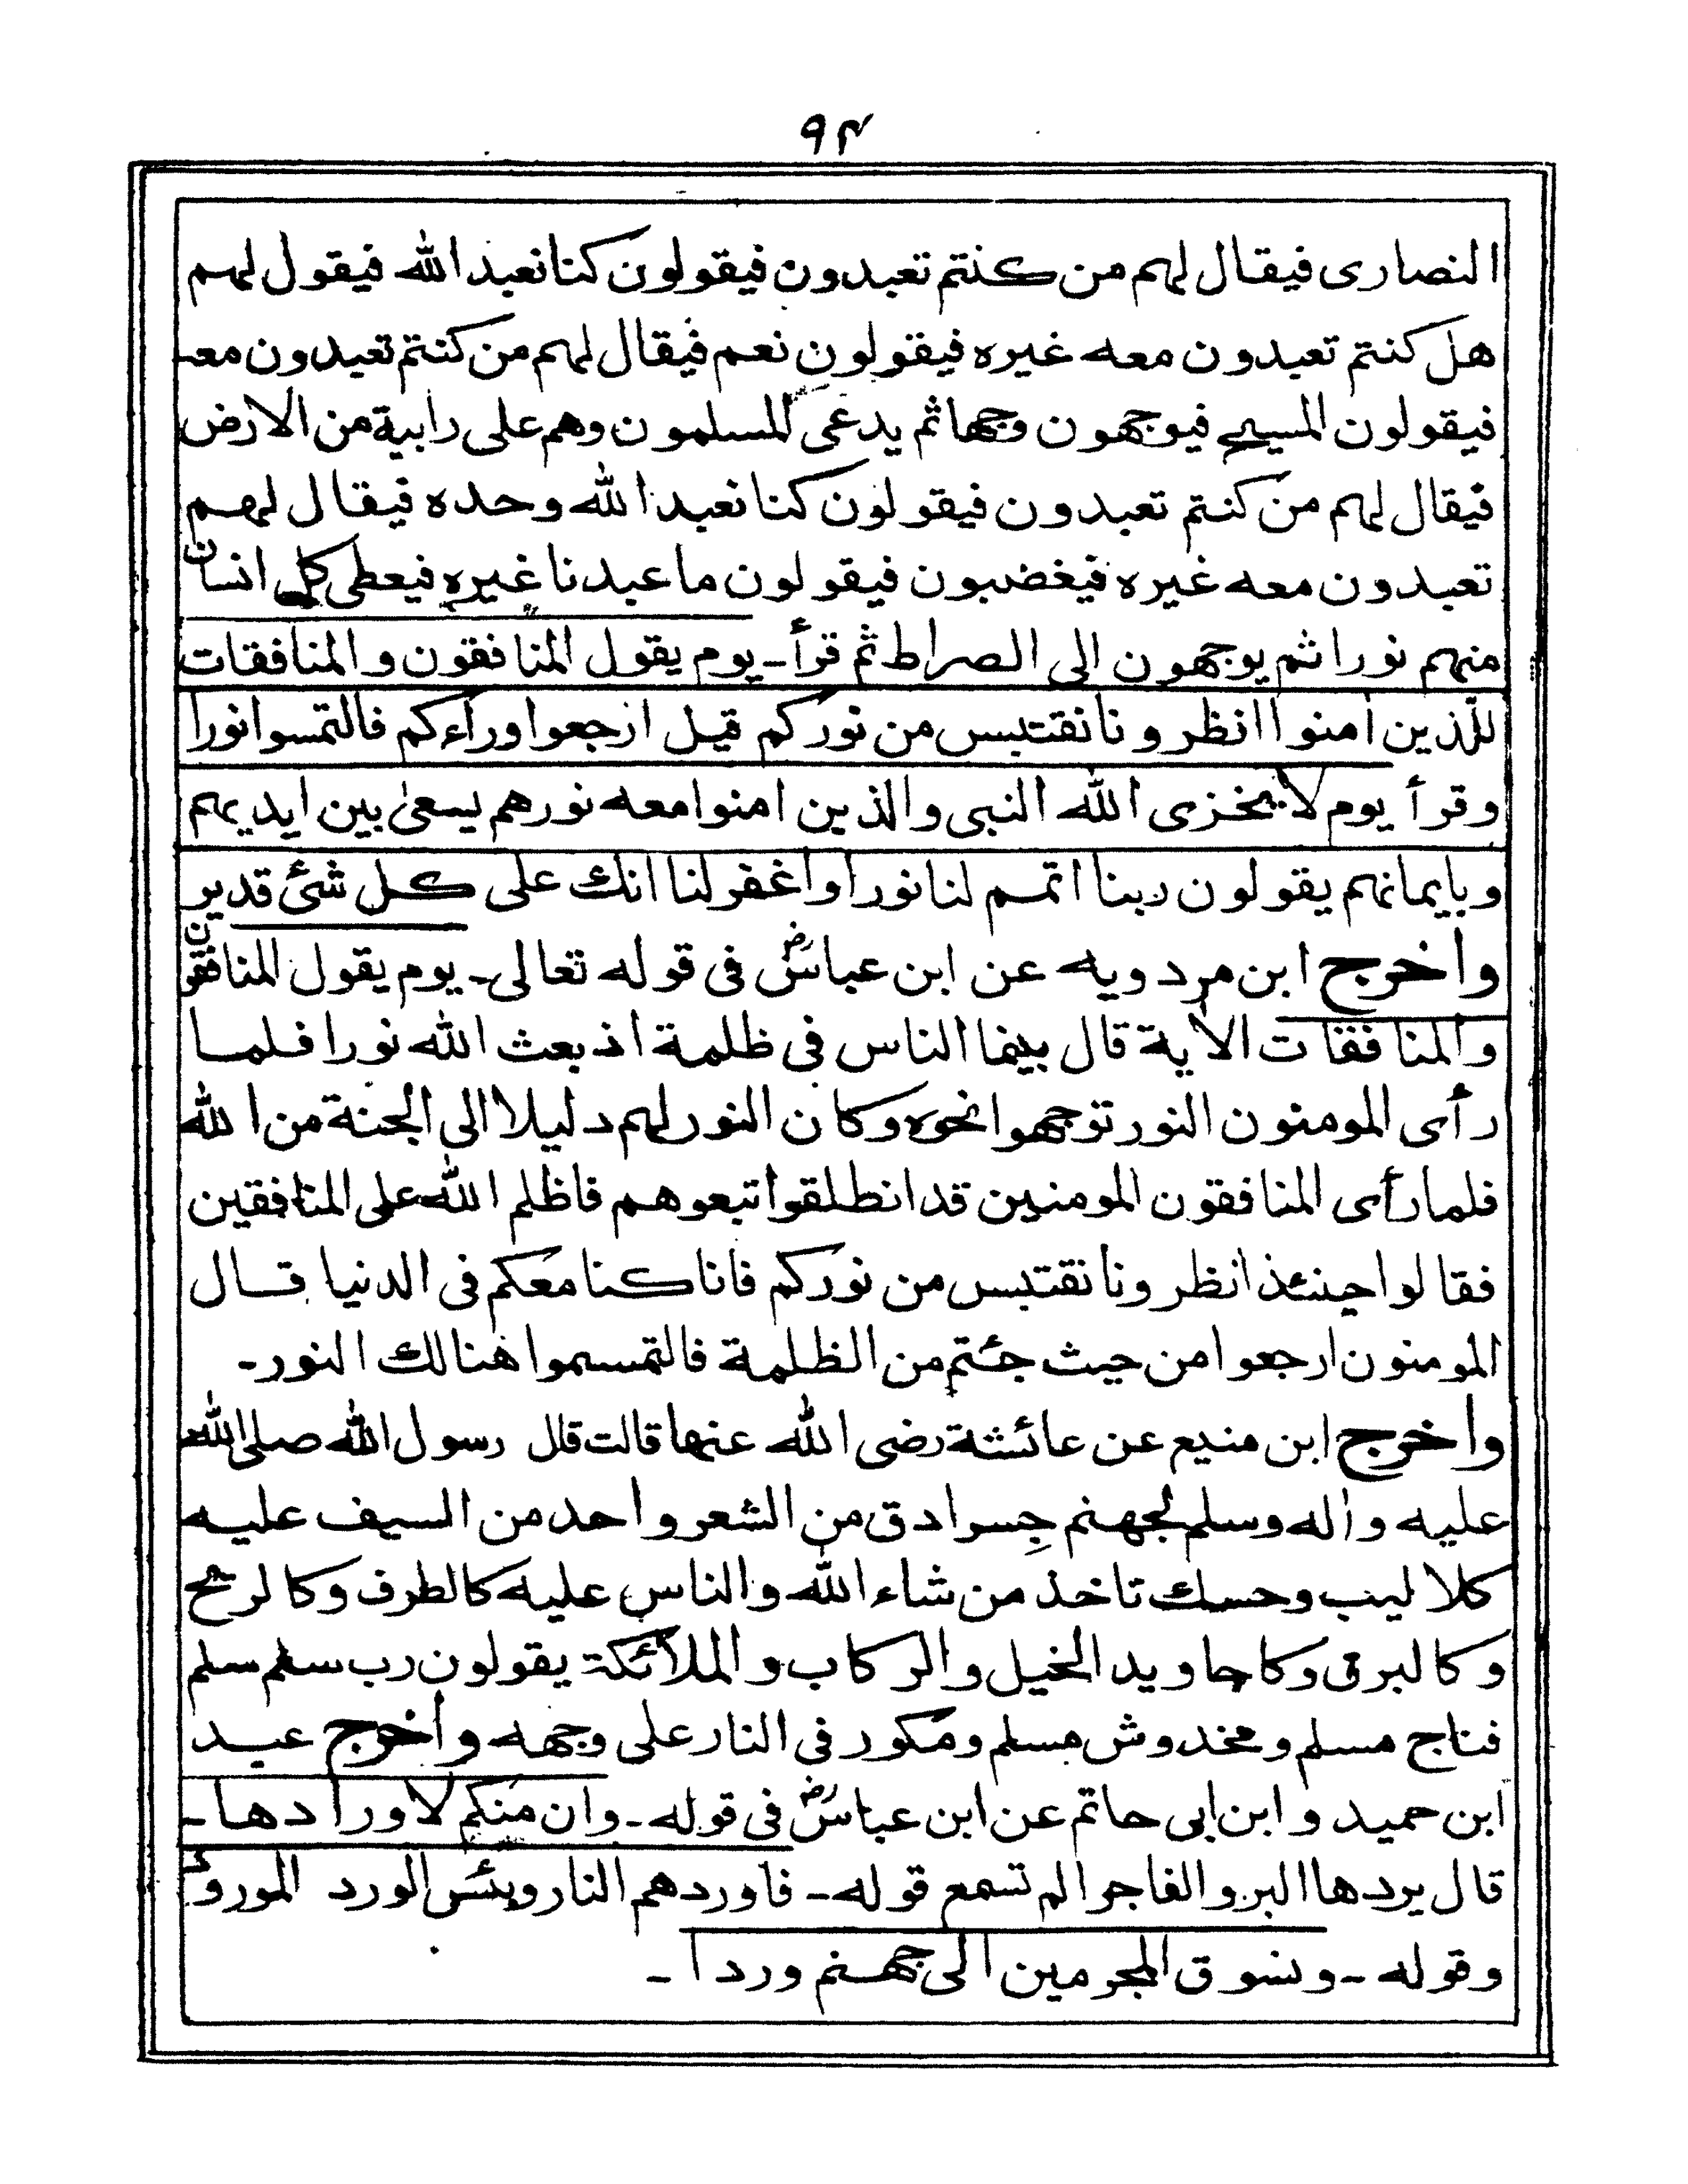 ٩٤
النصارى فيقال لهم من كنتم تعبدون فيقولون كنا نعبد الله فيقول لهم
هل كنتم تعبدون معه غيره فيقولون نعم فيقال لهم من كنتم تعبدون معه
فيقولون المسيح فيوجهون وجها ثم يدعى المسلمون وهم على رابية من الارض
فيقال لهم من كنتم تعبدون فيقولون كنا نعبد الله وحده فيقال لهم
تعبدون معه غيره فيغضبون فيقولون ما عبدنا غيره فيعطى كل انسان
منهم نورا ثم يوجهون الى الصراط ثم قرأ ـ يوم يقول المنافقون والمنافقات
للذين امنوا انظرونا نقتبس من نوركم قيل ارجعوا وراءكم فالتمسوا نورا
وقرأ يوم لا يخزى الله النبى والذين امنوا معه نورهم يسعى بين ايديهم
وبايمانهم يقولون ربنا اتمم لنا نورا واغفر لنا انك على كل شئ قدير
واخرج ابن مردويه عن ابن عباسؓ فى قوله تعالى ـ يوم يقول المنافقون
والمنافقات الآية قال بينما الناس فى ظلمة اذ بعث الله نورا فلما
رأى المومنون النور توجهوا نحوه وكان النور لهم دليلا الى الجنة من الله
فلما رأى المنافقون المومنين قد انطلقوا تبعوهم فاظلم الله على المنافقين
فقالوا حينئذ انظرونا نقتبس من نوركم فانا كنا معكم فى الدنيا قال
المومنون ارجعوا من حيث جئتم من الظلمة فالتمسوا هنالك النور ـ
واخرج ابن منيع عن عائشة رضى الله عنها قالت قال رسول الله صلى الله
عليه واله وسلم لجهنم جِسر ادق من الشعر واحد من السيف عليه
كلاليب وحسك تاخذ من شاء الله والناس عليه كالطرف وكالريح
وكالبرق وكاجاويد الخيل والركاب والملائكة يقولون رب سلم سلم
فناج مسلم ومخدوش مسلم ومكور فى النار على وجهه واخرج عبد
ابن حميد وابن ابى حاتم عن ابن عباسؓ فى قوله ـ وان منكم لا واردها ـ
قال يردها البر والفاجر الم تسمع قوله ـ فاوردهم النار وبئس الورد المورود
وقوله ـ ونسوق المجرمين الى جهنم وردا ـ